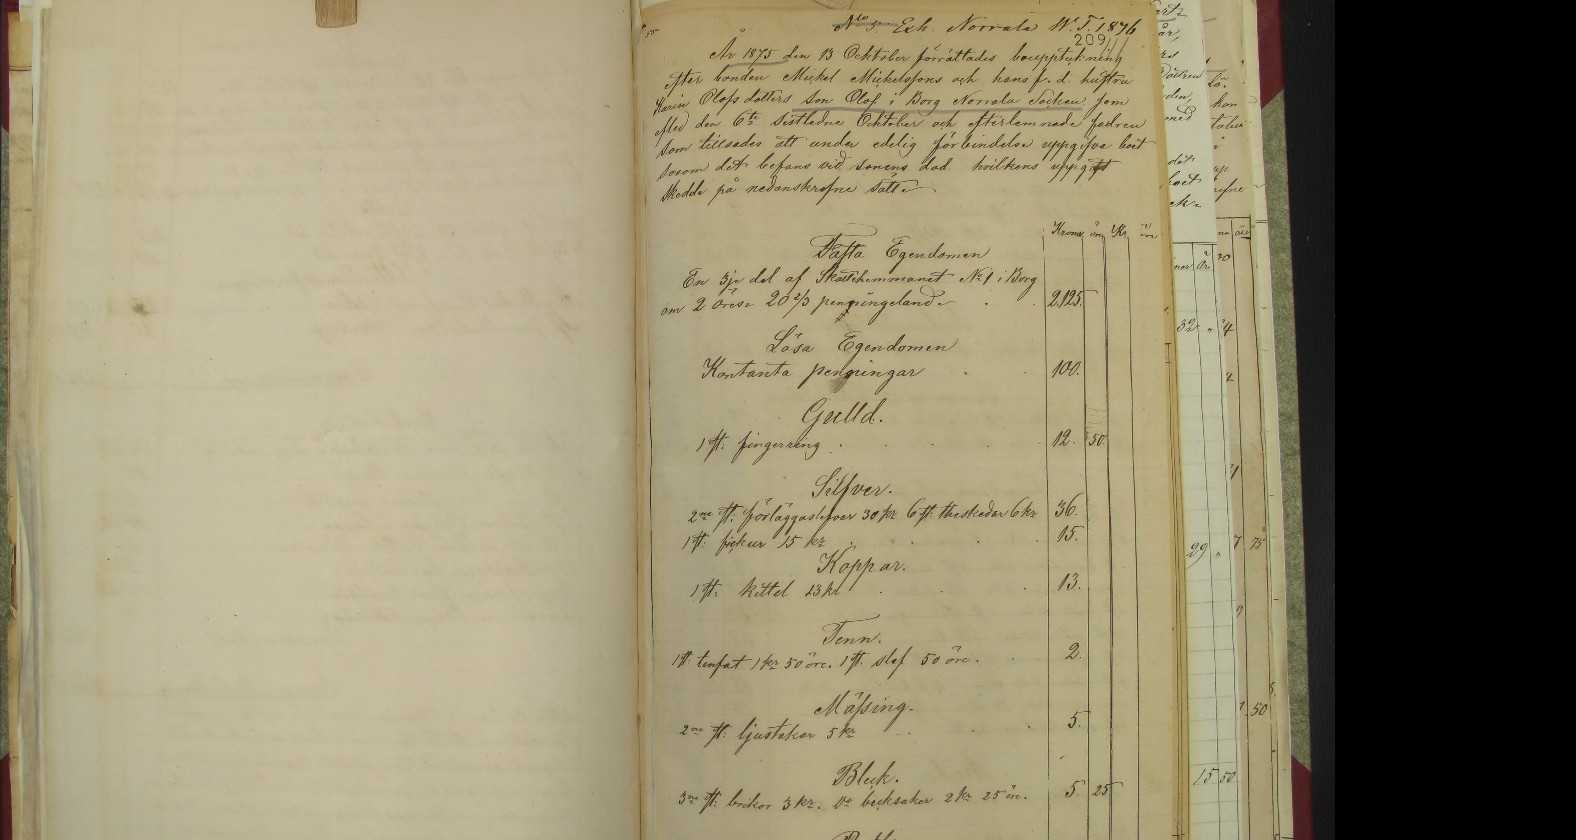 Exh. Norrala W. T. 1876
209
År 1875 den 13 Oktober förrättades bouppteckning
efter bonden Mickel Mickelssons och hans f. d. hustru
Karin Olofsdotters son Olof i Borg Norrala Socken som
afled den 6te sistledne Oktober och efterlemnade fadren
som tillsades att under edelig förbindelse uppgifva boet
sosom det befans vid sonens död hvilkens uppgift
skedde på nedanskrefne sätt
Krono öre Kr öre
Fasta Egendomen
En 3je del af Skattehemmanet No 1 i Borg
om 2 öres 20 2/3 penningeland 2,125.
Lösa Egendomen
Kontanta penningar 100.
Gulld.
1 st. fingerring 12. 50
Silfver.
2ne st. förläggaslefvar 30 kr 6 st. theskedar 6 kr 36.
1 st. fickur 15 kr 15.
Koppar.
1 st. kittel 13 kr 13.
Tenn.
1 st. tenfat 1 kr 50 öre. 1 st. slef 50 öre. 2.
Mässing.
2ne st. ljustakar 5 kr 5.
Bleck.
3ne st. brickor 3 kr. Do blecksaker 2 kr 25 öre. 5. 25